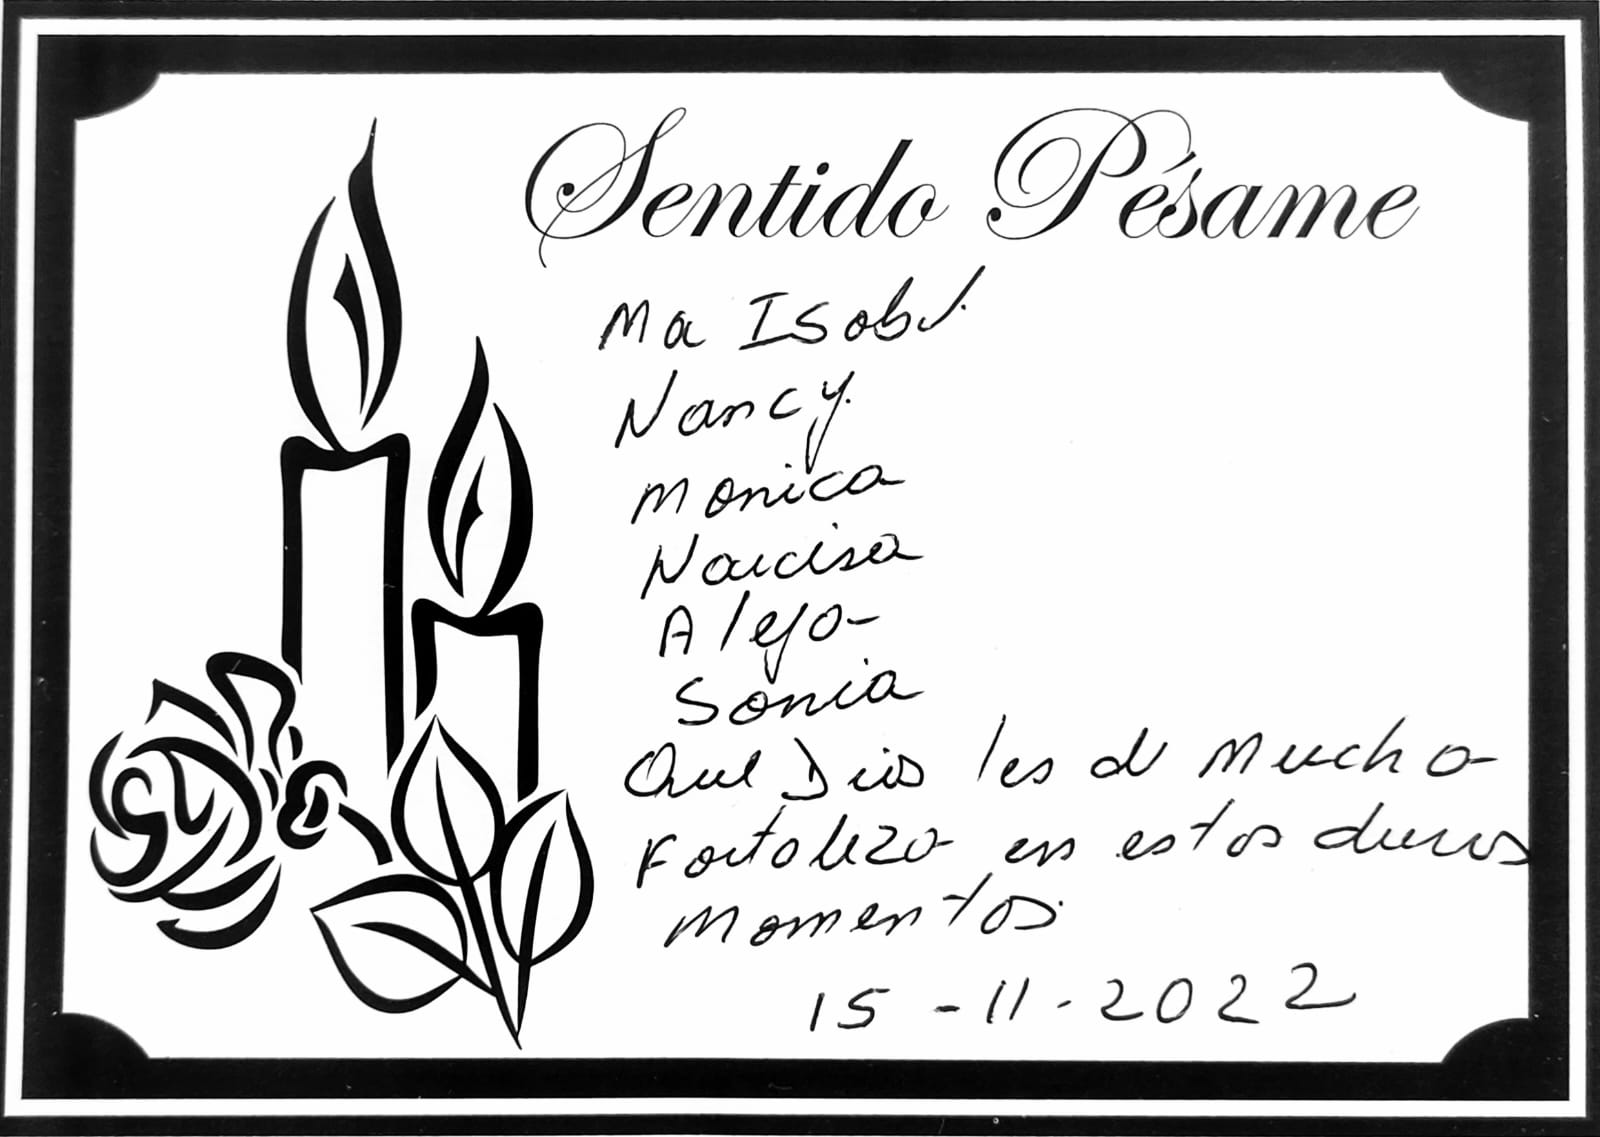 Sentido Pésame
Ma Isabel
Nancy
Monica
Narcisa
Alejo
Sonia
Que Dios les de mucha
Fortaleza en estos duros
momentos.
15-11-2022